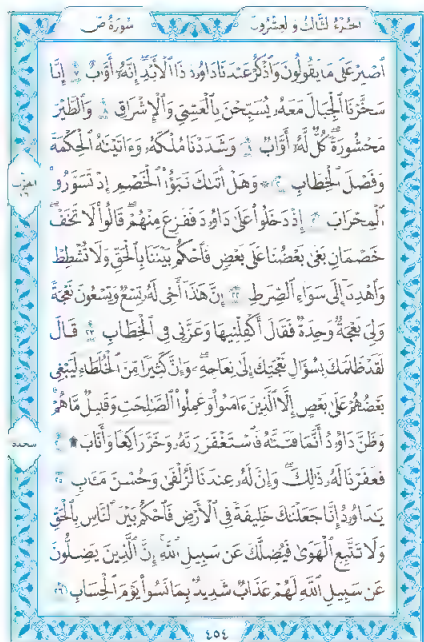 الجزء الثالث والعشرون
سورة ص
اصبر على ما يقولون واذكر عبدنا داوود ذا الأيد إنه أواب ١٧ إنا
سخرنا الجبال معه يسبحن بالعشي والإشراق ١٨ والطير
محشورة كل له أواب ١٩ وشددنا ملكه وءاتينه الحكمة
وفصل الخطاب ٢٠ وهل أتىك نبؤا الخصم إذ تسوروا
المحراب ٢١ إذ دخلوا على داوود ففزع منهم قالوا لا تخف
خصمان بغى بعضنا على بعض فاحكم بيننا بالحق ولا تشطط
واهدنا إلى سواء الصرط ٢٢ إن هذا أخى له تسع وتسعون نعجة
ولى نعجة وحدة فقال أكفلنيها وعزنى فى الخطاب ٢٣ قال
لقد ظلمك بسؤال نعجتك إلى نعاجه وإن كثيرا من الخلطاء ليبغى
بعضهم على بعض إلا الذين ءامنوا وعملوا الصلحت وقليل ما هم
وظن داوود أنما فتنه فاستغفر ربه وخر راكعا وأناب ٢٤
فغفرنا له ذلك وإن له عندنا لزلفى وحسن مءاب ٢٥
يداوود إنا جعلنك خليفة فى الأرض فاحكم بين الناس بالحق
ولا تتبع الهوى فيضلك عن سبيل الله إن الذين يضلون
عن سبيل الله لهم عذاب شديد بما نسوا يوم الحساب ٢٦
الحزب
٤٦
سجدة
٤٥٤